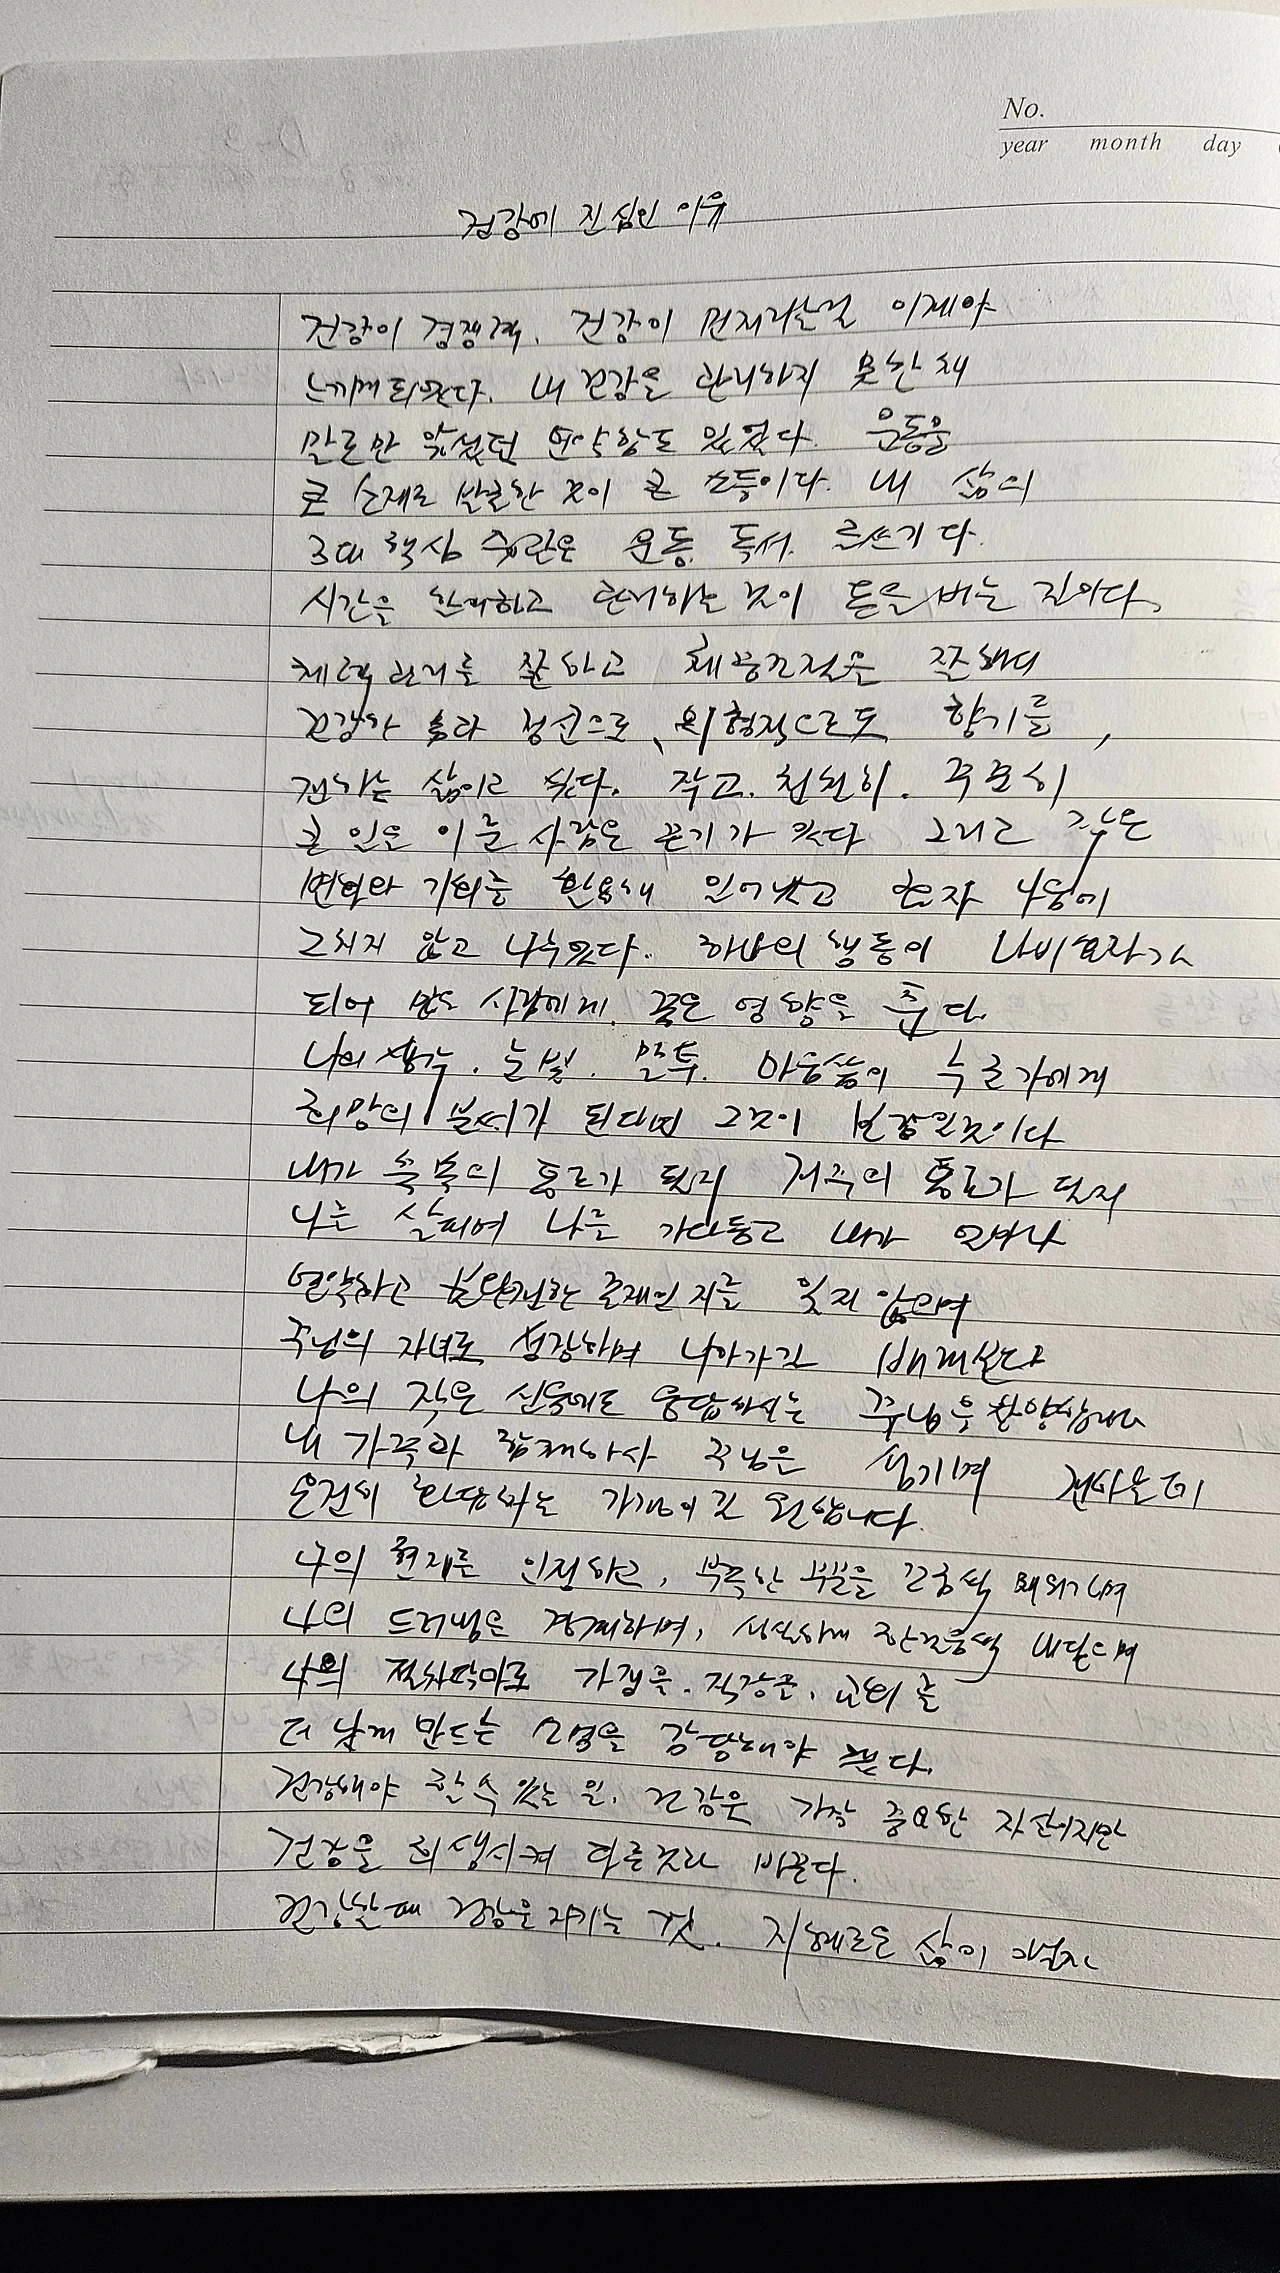 No.
year month day
건강에 진심인 이유
건강이 경쟁력. 건강이 먼저라는걸 이제야
느끼게 되었다. 내 건강을 관리하지 못한 채
말로만 앞섰던 연약함도 있었다. 운동을
큰 소재로 발굴한 것이 큰 소득이다. 내 삶의
3대 핵심 습관은 운동, 독서, 글쓰기다.
시간을 관리하는 것이 돈을 버는 길이다.
체력관리를 잘하고, 체중조절은 잘해서
건강한 정신으로, 외형적으로도 향기를,
전하는 삶이고 싶다. 작고, 천천히, 꾸준히
큰 일을 이룬 사람은 끈기가 있다 그리고 작은
변화와 기회를 활용해 일어났고 혼자 나음에
그치지 않고 나누었다. 하나의 행동이 나비효과가
되어 많은 사람에게 좋은 영향을 준다.
나의 생각, 눈빛, 말투, 마음씀이 누군가에게
희망의 불씨가 된다면 그것이 보람일것이다
내가 축복의 통로가 될지 저주의 통로가 될지
나를 살피며 나를 가다듬고 내가 얼마나
연약하고 불완전한 존재인지를 잊지 않으며
주님의 자녀로 성장하며 나아가길
나의 작은 신음에도 응답하시는 주님을 찬양합니다
내 가족과 함께하사 주님을 섬기며
온전히 가정이길 원합니다.
나의 현재를 인정하고, 부족한 부분을 조금씩 채워가며
나의 드러냄은 경계하며, 성실하게 한걸음씩 내딛으며
나의 절차탁마로 가정을, 직장을, 교회를
더 낫게 만드는 소명을 감당해야 한다.
건강해야 할 수 있는 일. 건강은 가장 중요한 자산이지만
건강을 희생시켜 다른것과 바꾼다.
건강할때 건강을 지키는 것. 지혜로운 삶이 아닐까